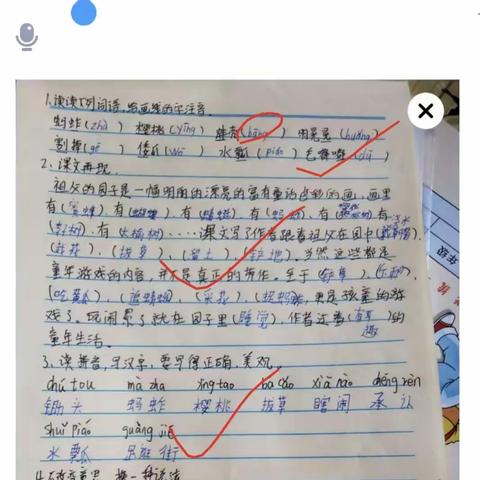 1、读读下列词语,给画线的字注音。
蚂蚱(zhà) 樱桃(yīng) 蚌壳(bàng) 明晃晃(huǎng)
割掉(gē) 倭瓜(wō) 水瓢(piáo) 毛嘟嘟(dū)
2、课文再现。
祖父的园子是一幅明丽的漂亮的富有童话色彩的画,画里
有(蜜蜂),有(蝴蝶),有(蜻蜓),有(蚂蚱),有( )有
( ),有(大榆树)……课文写了作者跟着祖父在园中( ),
(栽花),(拔草),( ),(铲地),当然这些都是
童年游戏的内容,并不是真正的劳作。至于( ),( ),
(吃黄瓜),(追蜻蜓),(采花),( ),更是孩童的游
戏了。玩闹累了就在园子里(睡觉),作者过着( )的
童年生活。
3、读拼音,写汉字,要写得正确、美观。
chú tou mà zha yīng tao bá cǎo xiā nào chéng rèn
锄头 蚂蚱 樱桃 拔草 瞎闹 承认
shuǐ piáo guàng jiē
水瓢 逛街